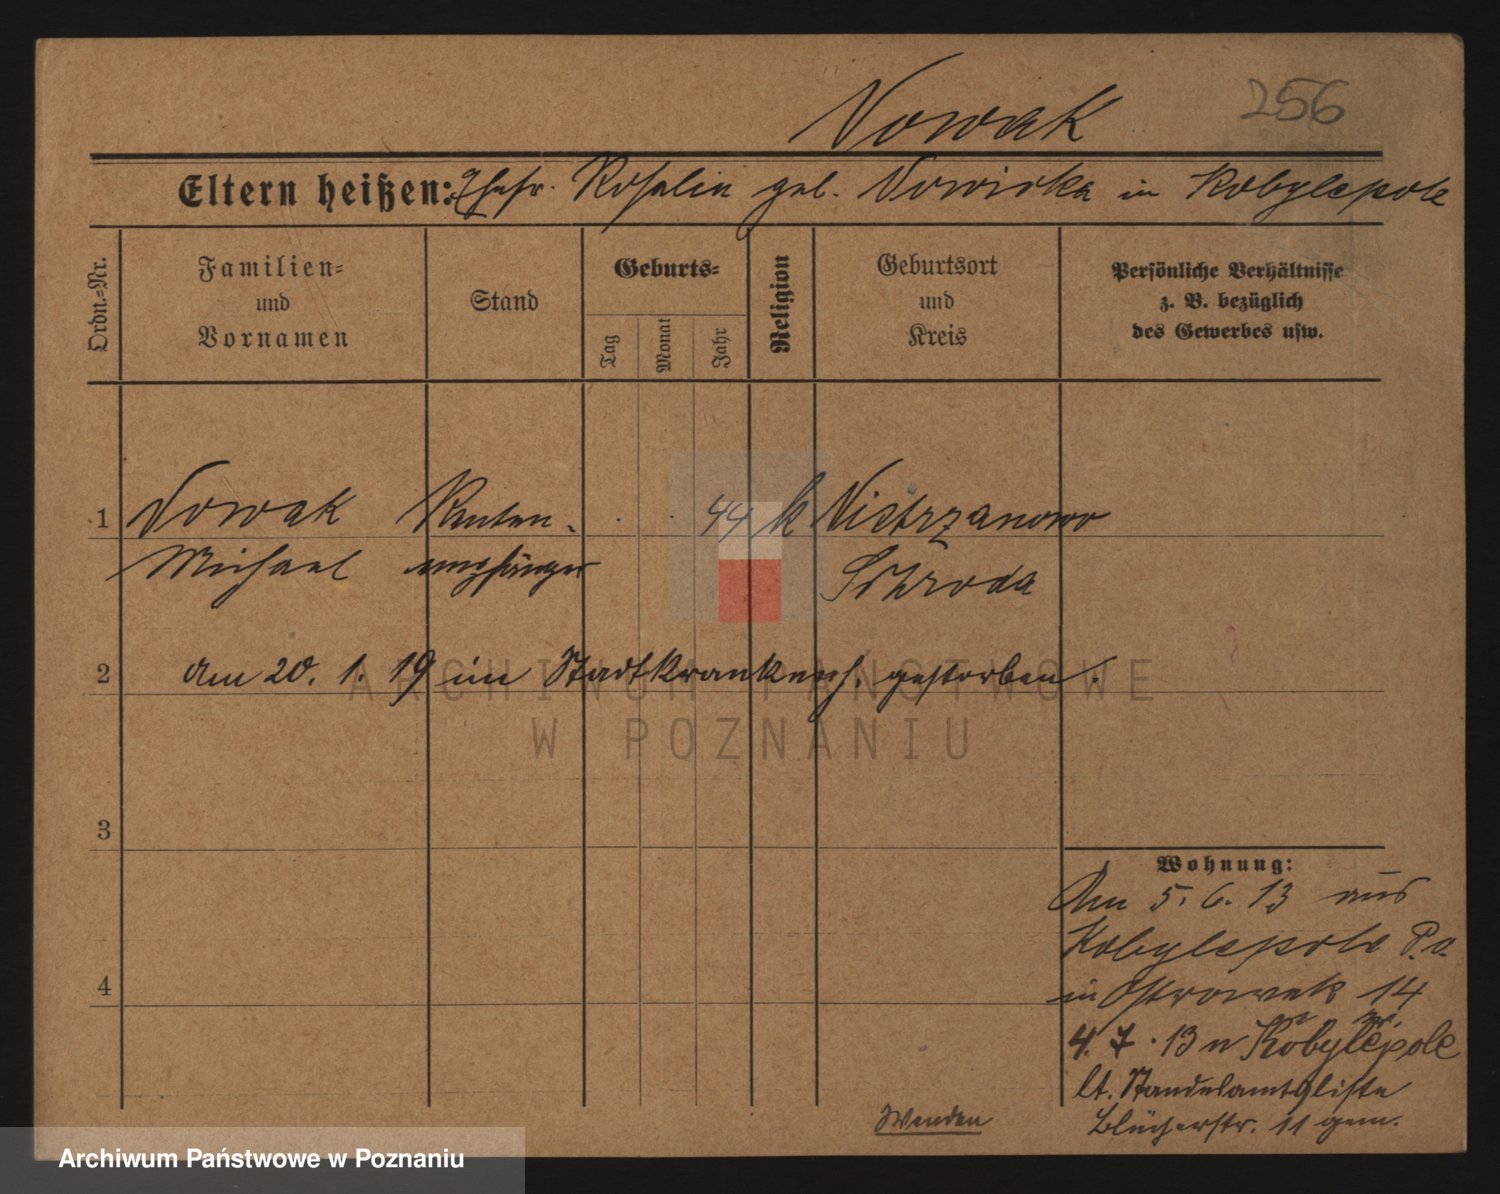 Nowak
256
Eltern heißen: Ehefr. Rosalie geb. Nowicka in Kobylepole
Ordn.-Nr.
Familien-
und
Vornamen
Stand
Geburts-
Tag
Monat
Jahr
Religion
Geburtsort
und
Kreis
Persönliche Verhältnisse
z. B. bezüglich
des Gewerbes usw.
1 Nowak Renten- 44 k Nietrzanowo
Michael empfänger Schroda
2 Am 20. 1. 19 im Stadtkrankenh. gestorben.
3
4
Wohnung:
Am 5. 6. 13 aus
Kobylepole P. O.
in Ostrowek 14
4. 7. 13 n Kobylepole
lt. Standesamtsliste
Blücherstr. 11 gem.
Wenden
ARCHIWUM PAŃSTWOWE
W POZNANIU
Archiwum Państwowe w Poznaniu